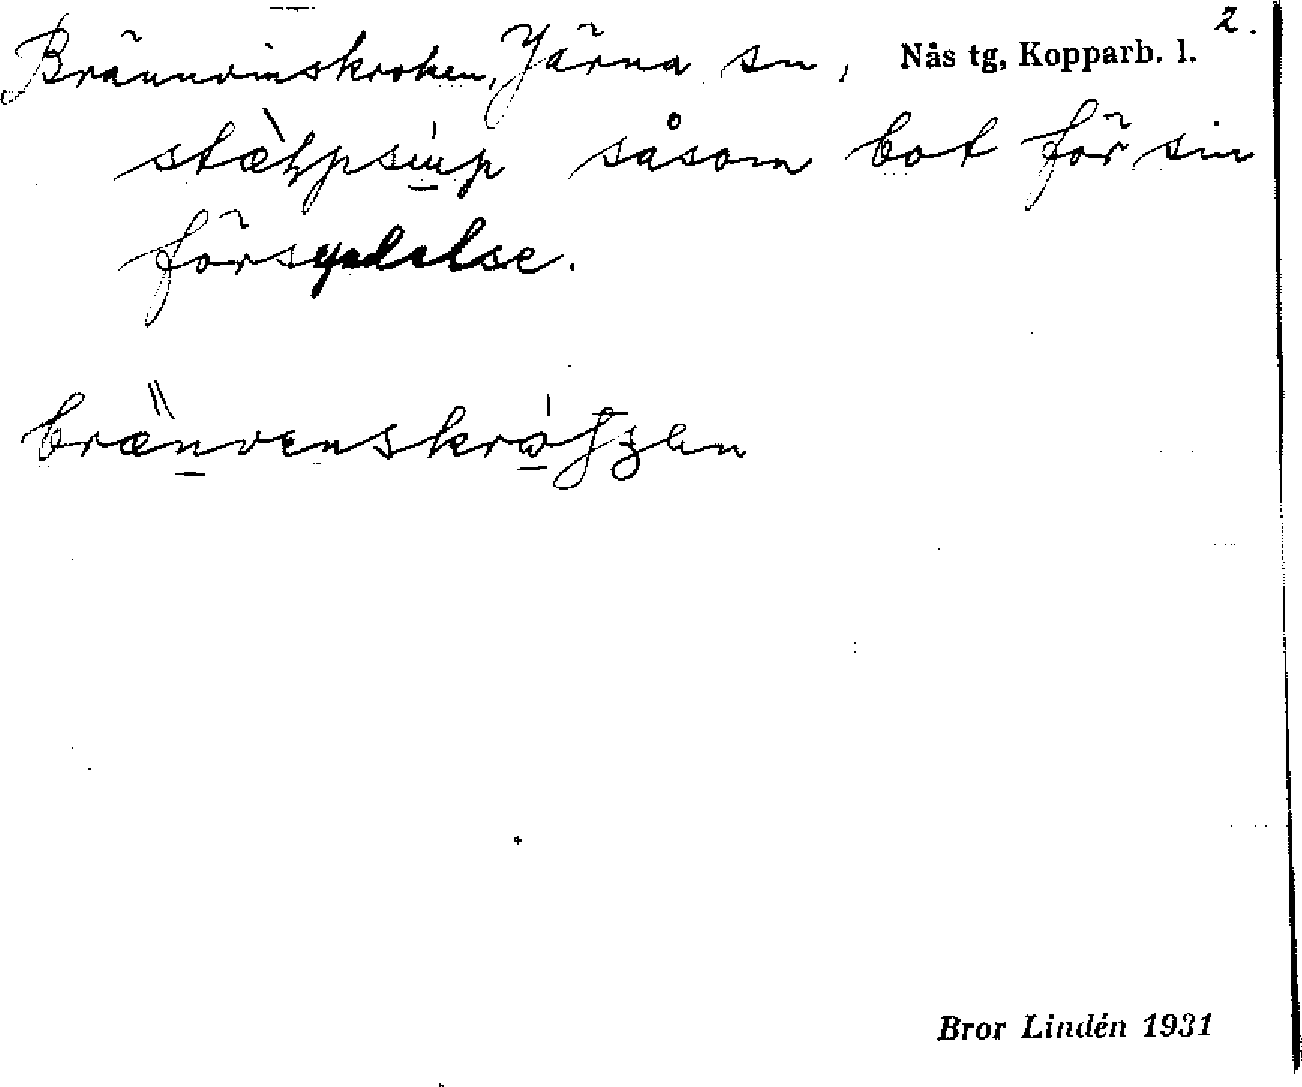 2.
Brännvinskroken, Järna sn, Nås tg, Kopparb. l.
såsom bot för sin
försyndelse.
Bror Lindén 1931